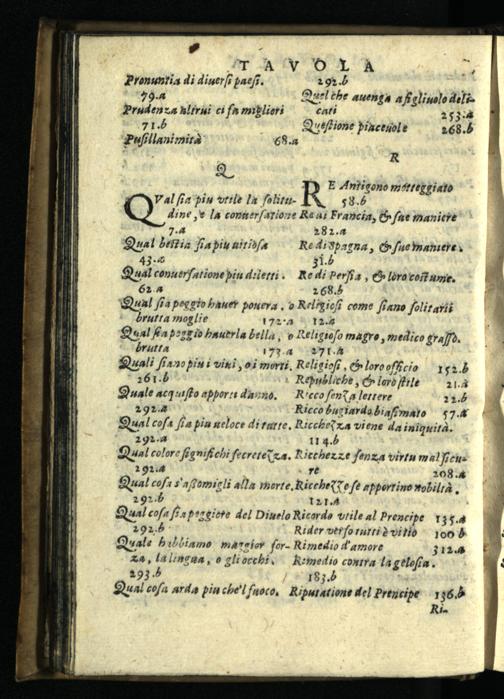 TAVOLA
Pronuntia di diuersi paesi.
79.a
Prudenza altrui ci fa miglieri
71.b
Pusillanimità 68.a
Q
QVal sia piu vtile la solitu-
dine, o la conuersatione
7.a
Qual bestia sia piu uitiosa
43.a
Qual conuersatione piu diletti.
62.a
Qual sia peggio hauer pouera, o
brutta moglie 172.a
Qual sia peggio hauerla bella, o
brutta 173.a
Quali siano piu i viui, o i morti.
261.b
Quale acquisto apporti danno.
292.a
Qual cosa sia piu ueloce di tutte.
292.a
Qual colore significhi secretezza.
292.a
Qual cosa s'assomigli alla morte.
292.b
Qual cosa sia peggiore del Diuelo
292.b
Quale habbiamo maggior for-
za, la lingua, o gli occhi.
293.b
Qual cosa arda piu che'l fuoco.
292.b
Quel che auenga a figliuolo deli-
cati 253.a
Questione piaceuole 268.b
R
RE Antigono motteggiato
58.b
Re di Francia, & sue maniere
282.a
Re di Spagna, & sue maniere.
31.b
Re di Persia, & loro costume.
268.b
Religiosi come siano solitarii
12.a
Religioso magro, medico grasso.
271.a
Religiosi, & loro officio 152.b
Republiche, & loro stile 21.a
Ricco senza lettere 22.b
Ricco bugiardo biasimato 57.a
Ricchezza viene da iniquità.
114.b
Ricchezze senza virtu mal sicu-
re 208.a
Ricchezze se apportino nobiltà.
121.a
Ricordo vtile al Prencipe 135.a
Rider verso tutti è vitio 100 b
Rimedio d'amore 312.a
Rimedio contra la gelosia.
183.b
Riputatione del Prencipe 136.b
Ri-